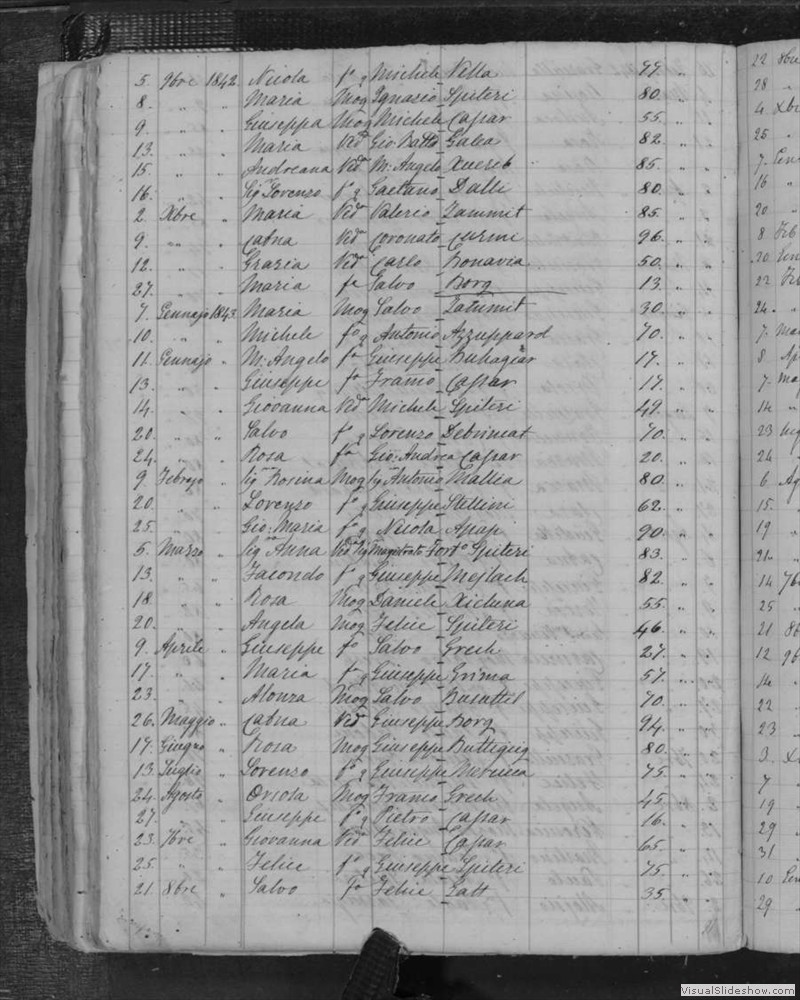 5. 9bre 1842. Nicola fo q Michele Vella 79. "
8. " " Maria Mog Ignazio Spiteri 80. "
9. " " Giuseppa Mog Michele Caśar 55. "
13. " " Maria Vedª Gio Batta Galea 82. "
15. " " Andreana Vedª M: Angelo Xuereb 85. "
16. " " Sigr Lorenzo fo q Gaetano Dalli 80. "
2. Xbre " Maria Vedª Valerio Zammit 85. "
9. " " Catna Vedª Coronato Curmi 96. "
12. " " Grazia Vedª Carlo Bonavia 50. "
27. " " Maria fa Salvo Borg 13. "
7. Gennajo 1843. Maria Mog Salvo Zammit 30. "
10. " " Michele fo q Antonio Azzuppard 70. "
11. Gennajo " M: Angelo fo Giuseppe Buhagiar 17. "
13. " " Giuseppe fo Franco Caśar 17. "
14. " " Giovanna Ved Michele Spiteri 49. "
20. " " Salvo fo q Lorenzo Debrincat 70. "
24. " " Rosa fa Gio: Andrea Caśar 20. "
9. Febrajo " Siga Rosina Mog Sig Antonio Mallia 80. "
20. " " Lorenzo fo q Giuseppe Stellini 62. "
25. " " Gio: Maria fo q Nicola Apap 90. "
5. Marzo " Siga Anna Vedª Sig Magistrato Forto Spiteri 83. "
13. " " Facondo fo q Giuseppe Mejlach 82. "
18. " " Rosa Mog Daniele Xicluna 55. "
20. " " Angela Mog Felice Spiteri 46. "
9. Aprile " Giuseppe fo Salvo Grech 27. "
17. " " Maria fa q Giuseppe Grima 57. "
23. " " Alonza Mog Salvo Busuttil 70. "
26. Maggio " Catna Ved Giuseppe Borg 94. "
17. Giugno " Rosa Mog Giuseppe Buttigieg 80. "
13. Luglio " Lorenzo fo q Giuseppe 75. "
24. Agosto " Orsola Mog Franco Grech 45. "
27. " " Giuseppe fo q Pietro Caśar 16. "
23. 7bre " Giovanna Ved Felice Caśar 65. "
25. " " Felice fo q Giuseppe Spiteri 75. "
21. 8bre " Salvo fo Felice Zatt 35. "
22 8bre
28 "
4 Xb
25 "
7. Gen
16 "
20 "
8 Feb
20 Gen
22
24. "
7 Ma
8 Ap
7 Mag
14 "
23
24 "
6 Ag
15. "
19 "
21. "
14 7b
25 "
21 8b
12 9b
14. "
22 "
23 "
3. X
7 "
19 "
29 "
31 "
10 Gen
29 "
VisualSlideshow.com